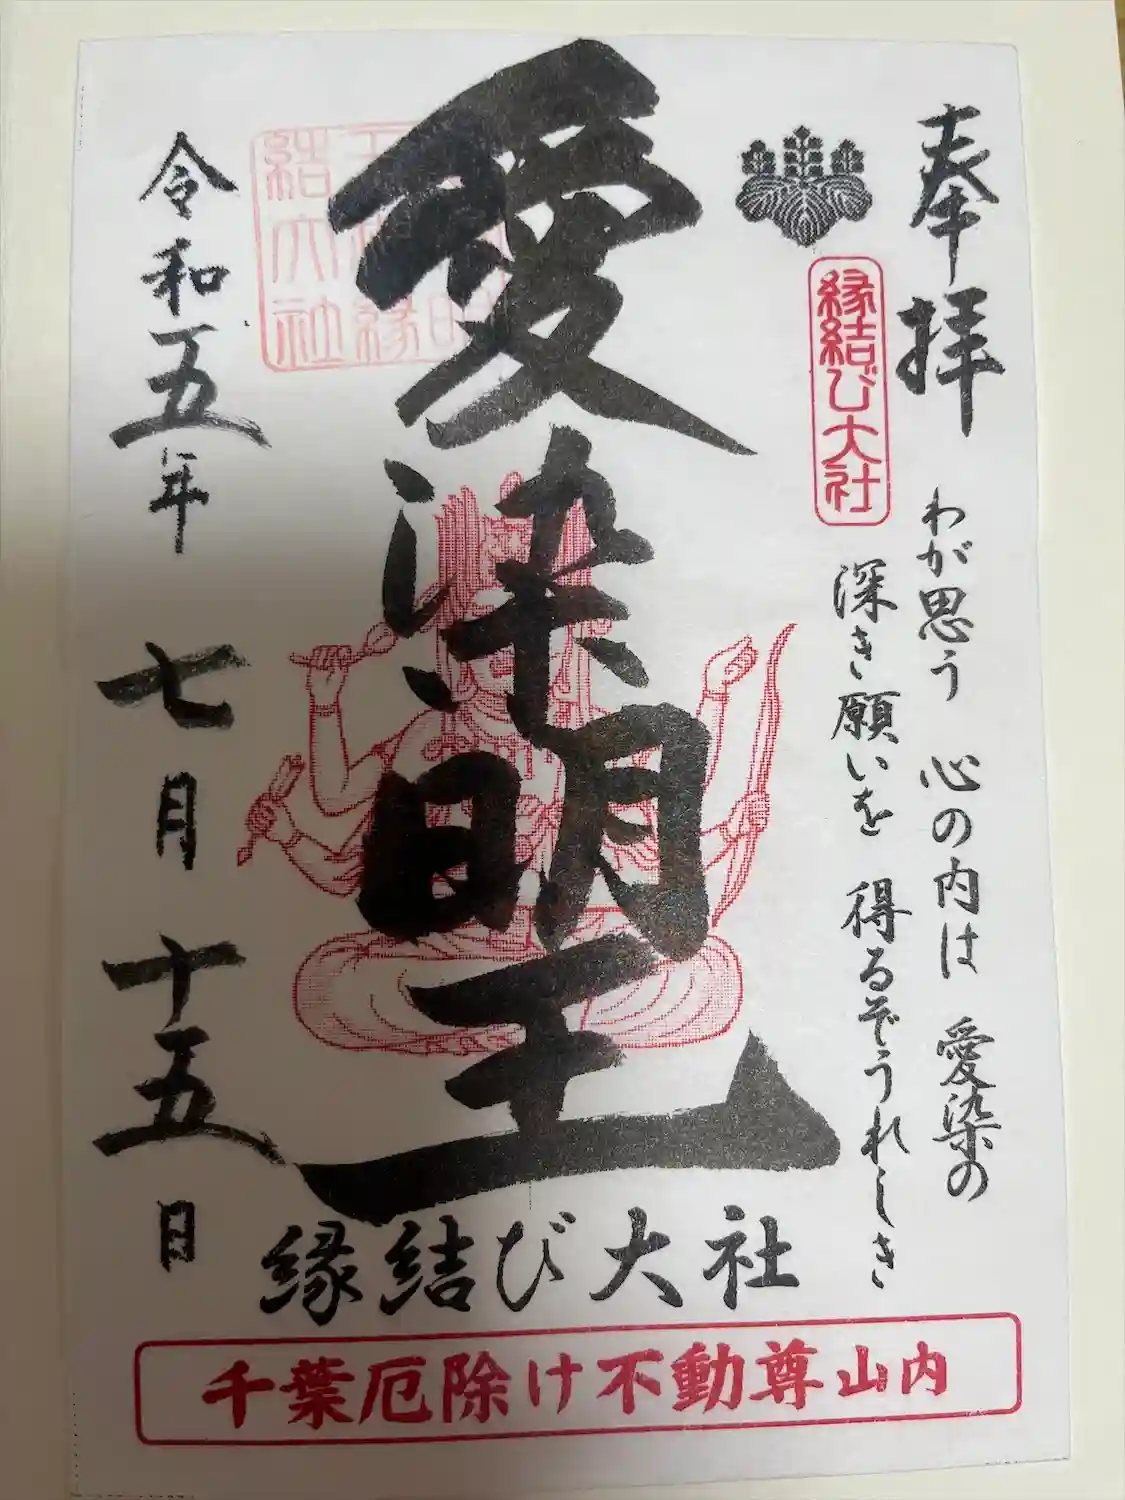 奉拝
わが思う 心の内は 愛染の
深き願いを 得るぞうれしき
縁結び大社
愛染明王
令和五年 七月 十五日
縁結び大社
千葉厄除け不動尊山内